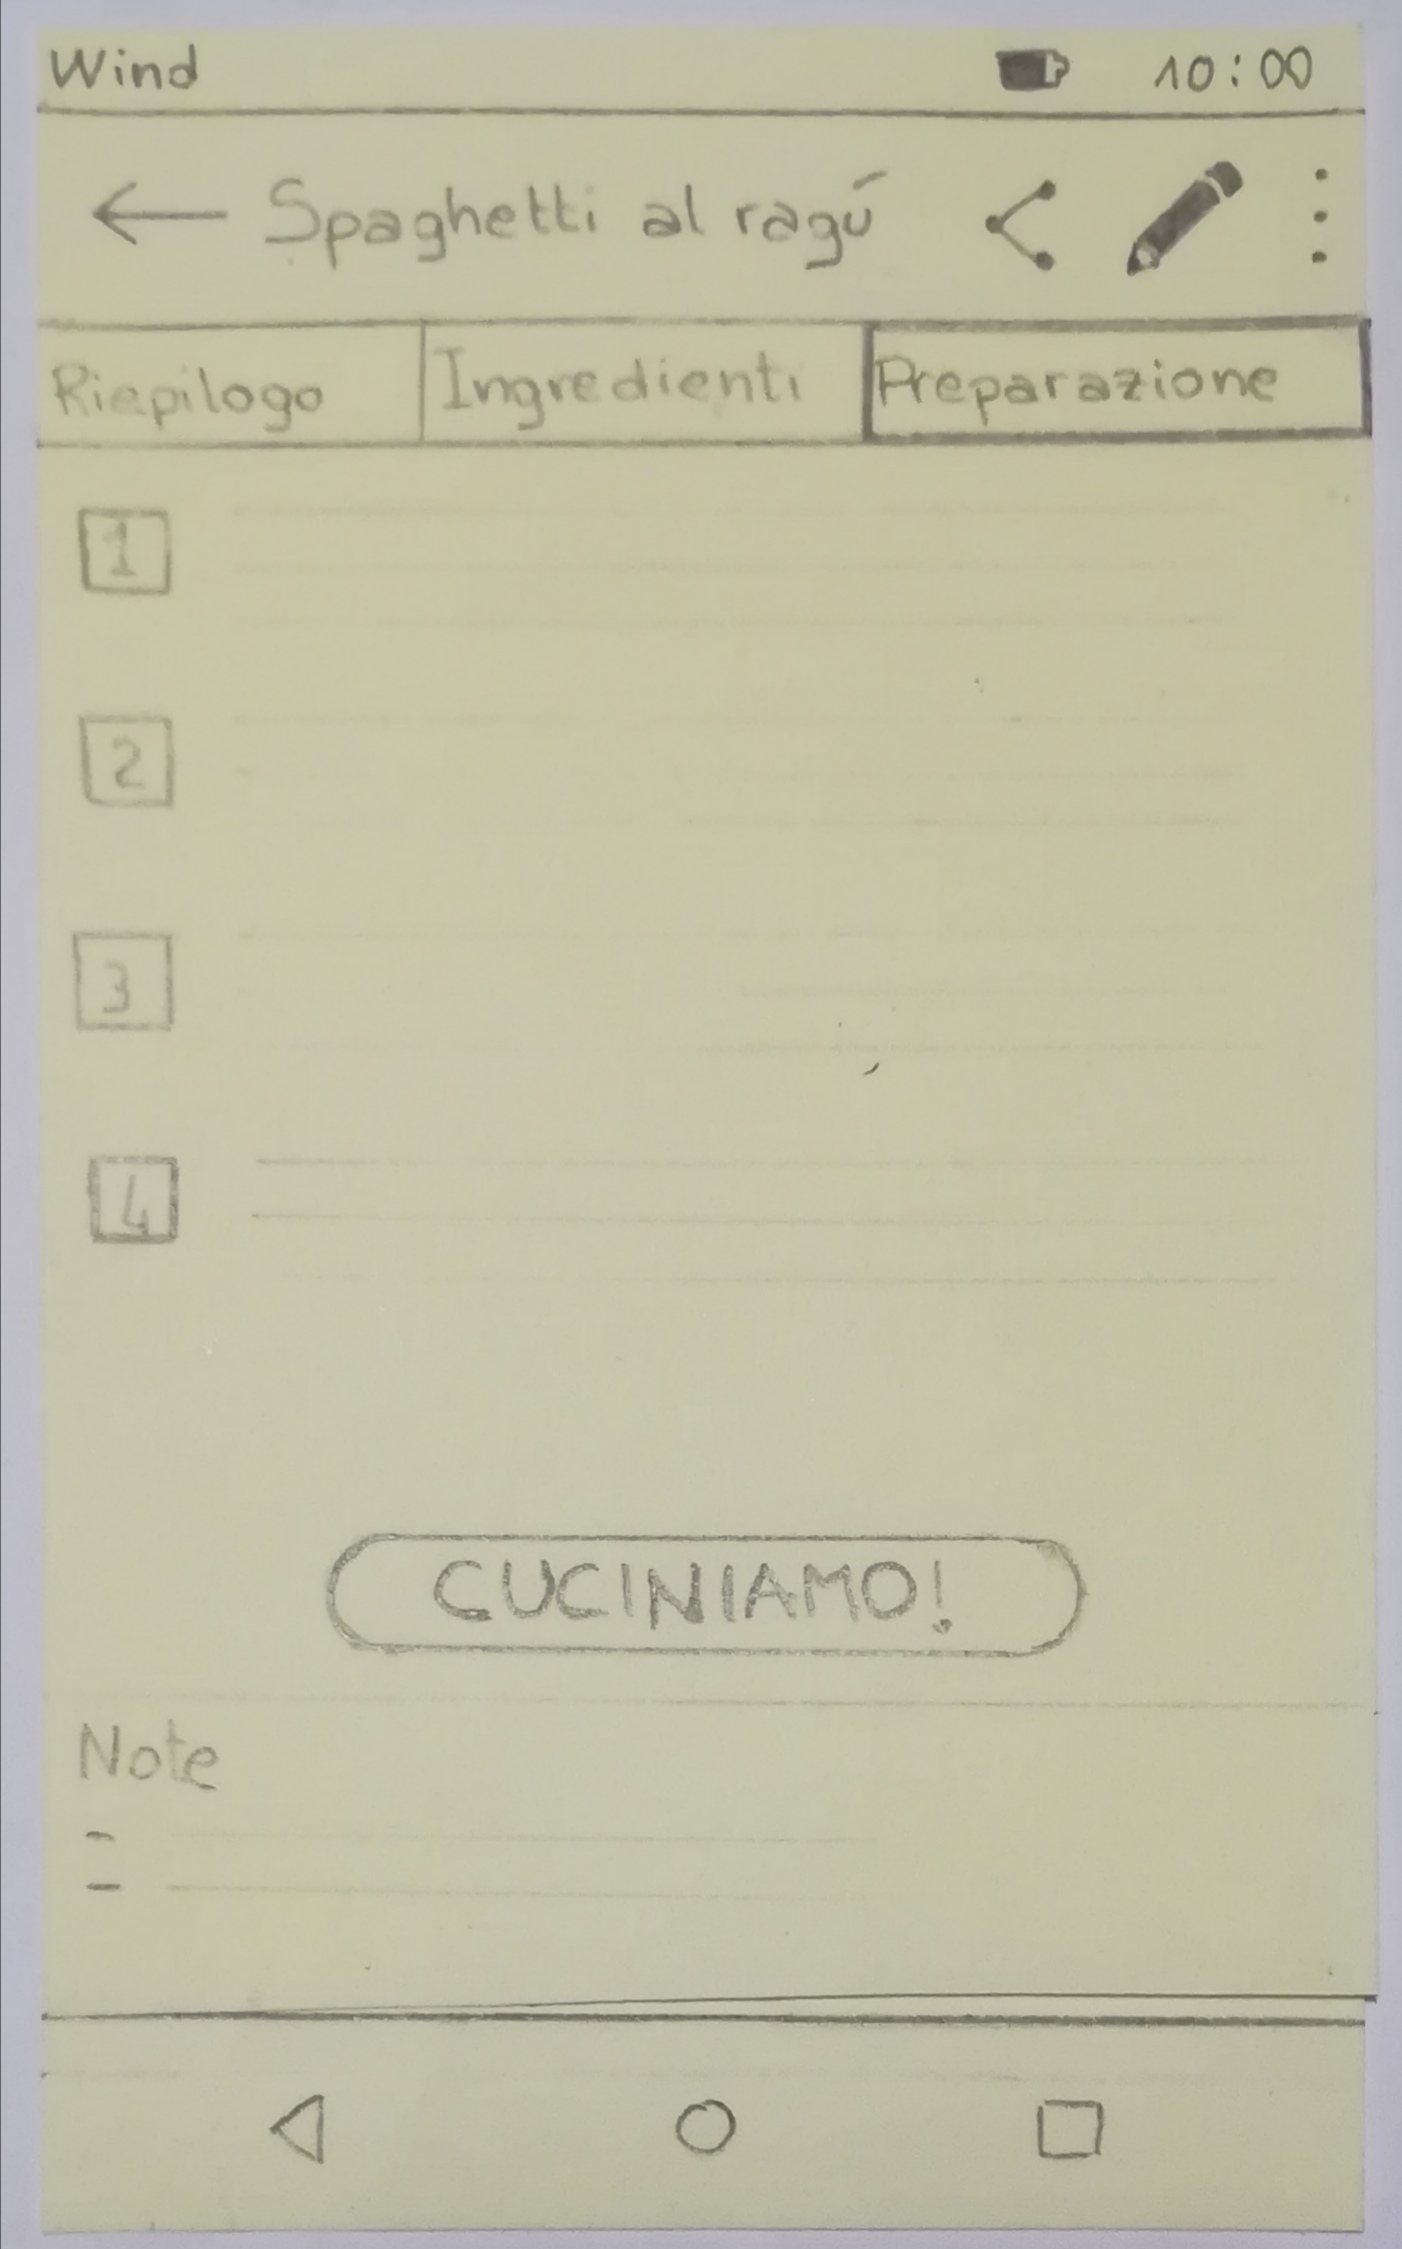 Wind 10:00
Spaghetti al ragú
Riepilogo Ingredienti Preparazione
1
2
3
4
CUCINIAMO!
Note